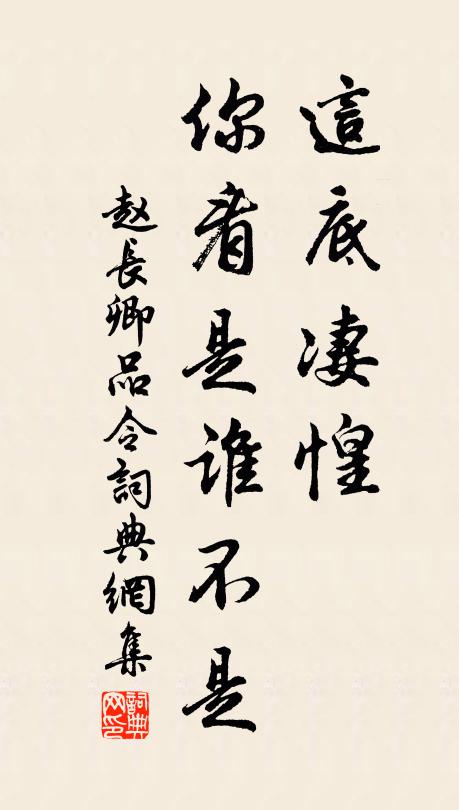 這底淒惶
你看是誰不是
赵長卿品令詞典網集
詞典网印